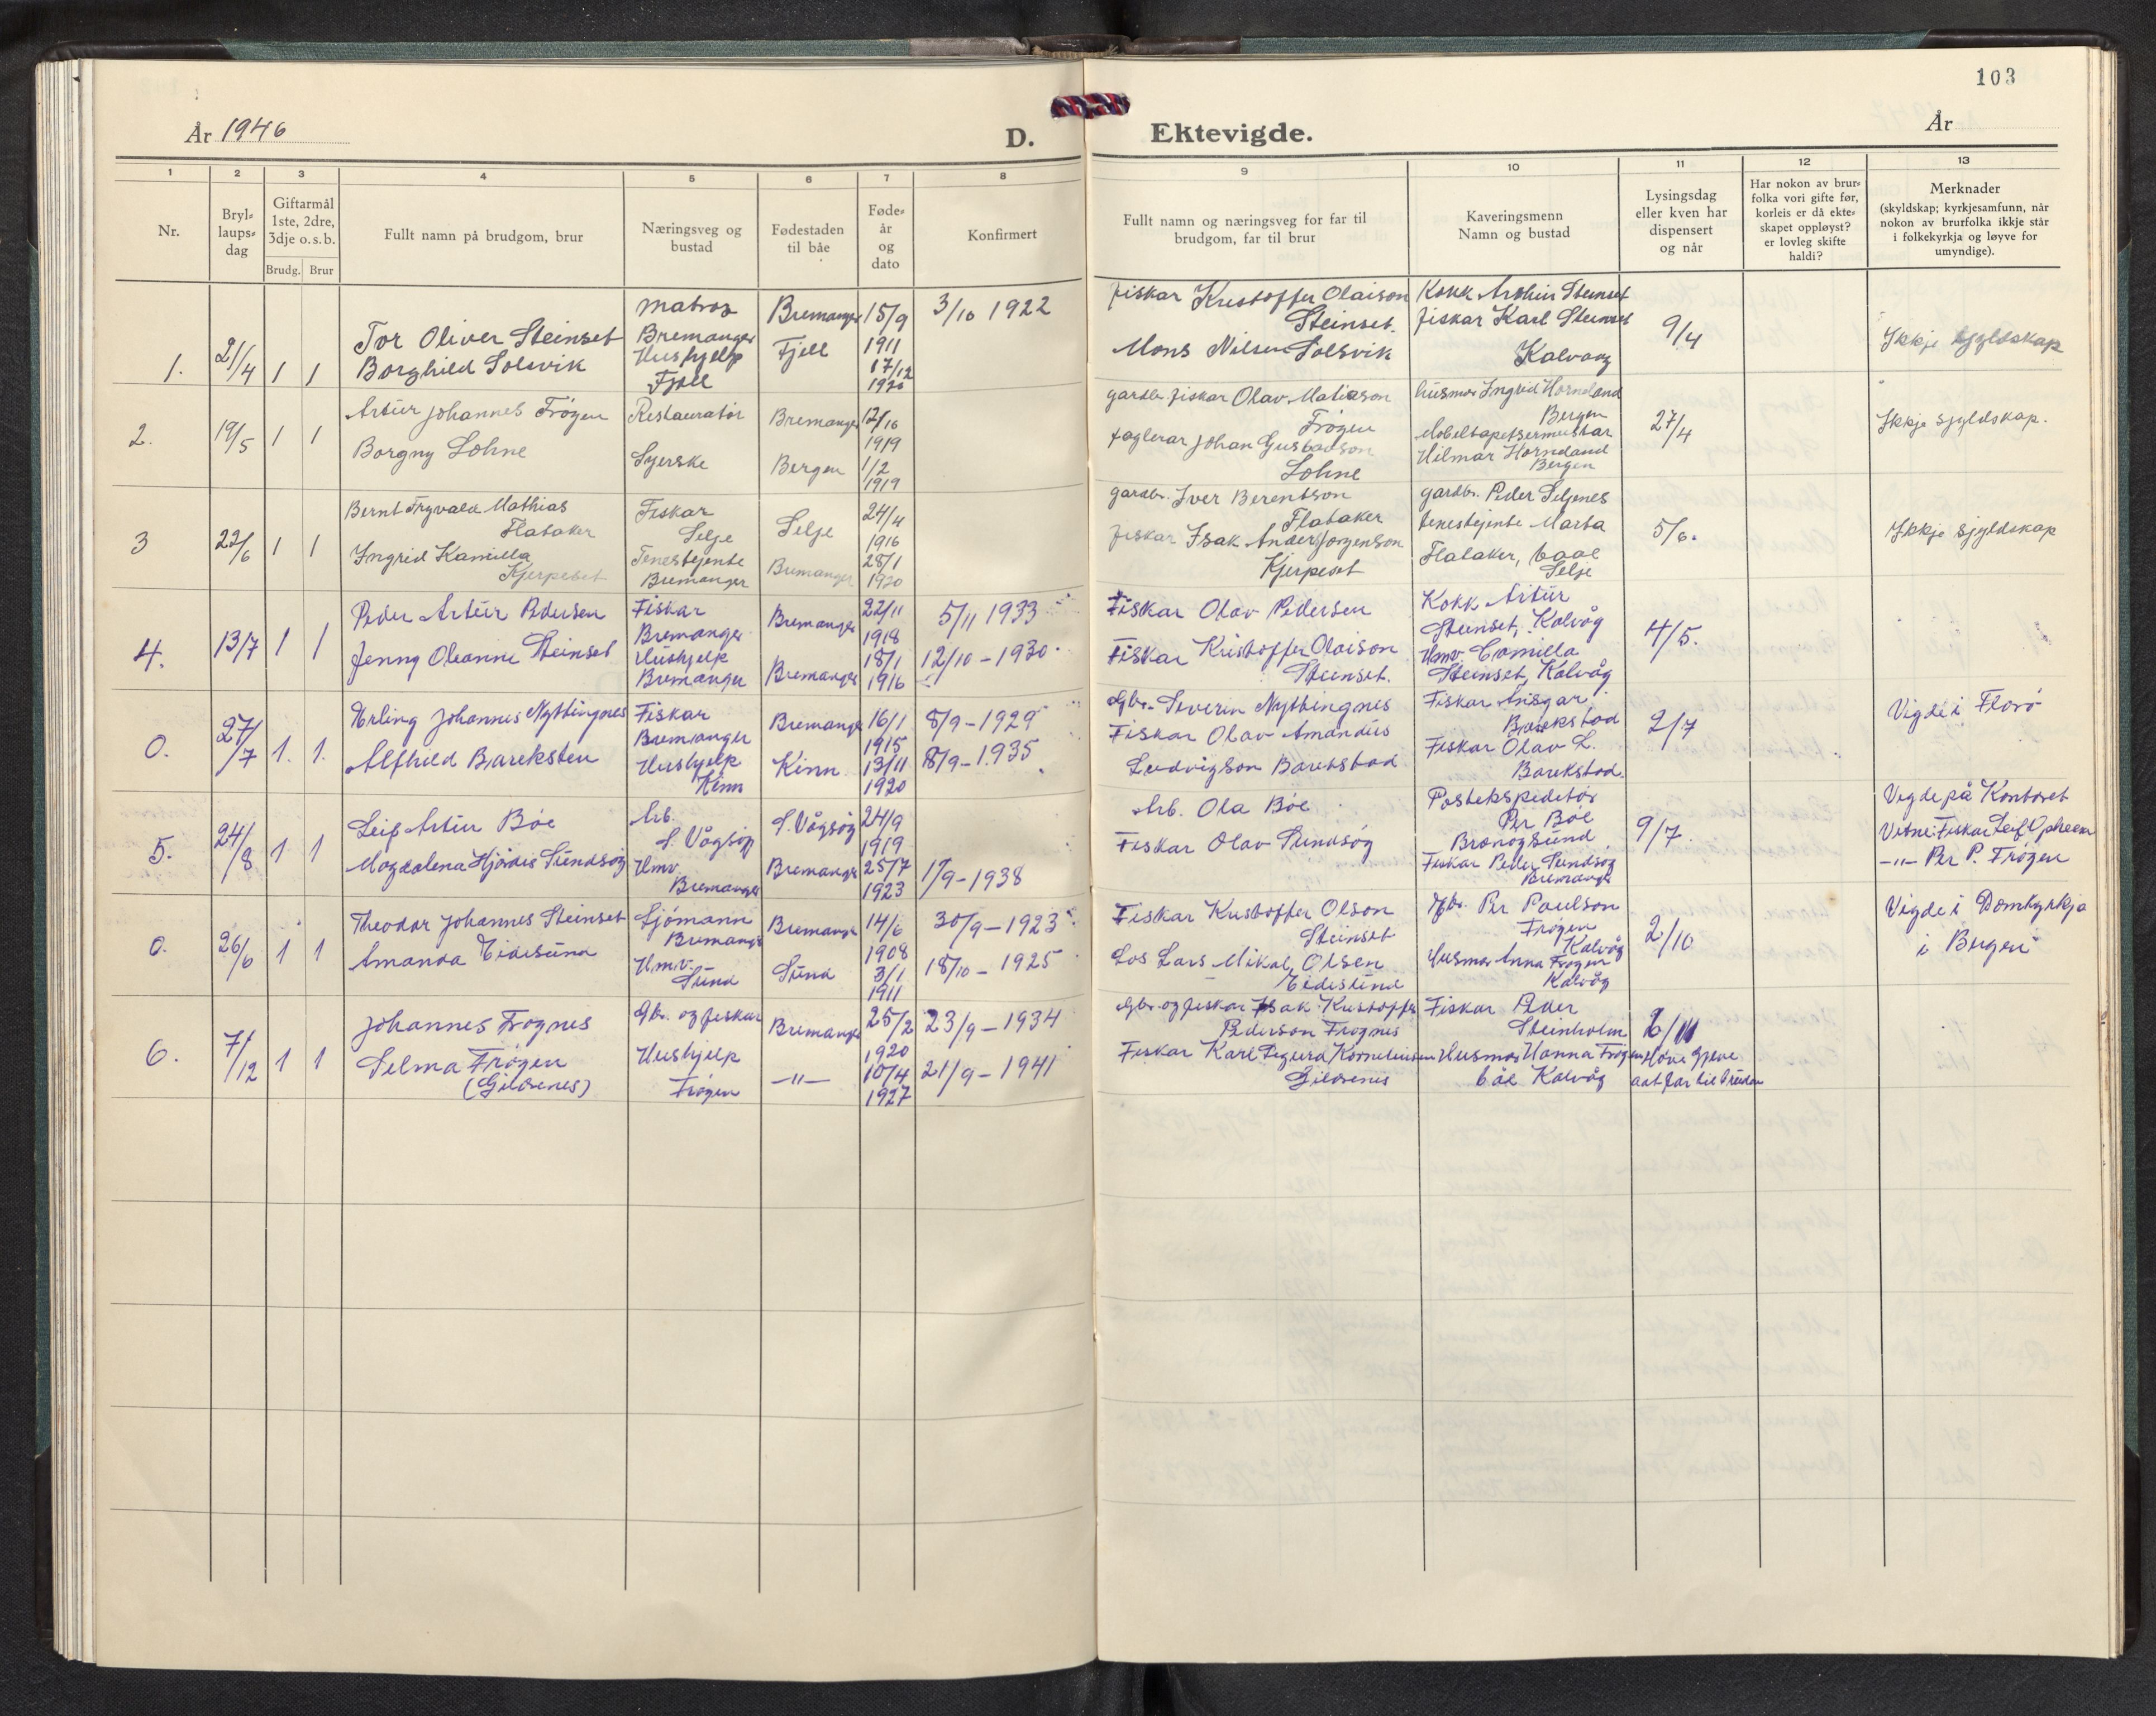 103
År 1946
D.
Ektevigde.
År
1
2
3
4
5
6
7
8
9
10
11
12
13
Nr.
Bryl-
laups-
dag
Giftarmål
1ste, 2dre,
3dje o. s. b.
Brudg. Brur
Fullt namn på brudgom, brur
Næringsveg og
bustad
Fødestaden
til båe
Føde-
år
og
dato
Konfirmert
Fullt namn og næringsveg for far til
brudgom, far til brur
Kaveringsmenn
Namn og bustad
Lysingsdag
eller kven har
dispensert
og når
Har nokon av brur-
folka vori gifte før,
korleis er då ekte-
skapet oppløyst?
er lovleg skifte
haldi?
Merknader
(skyldskap; kyrkjesamfunn, når
nokon av brurfolka ikkje står
i folkekyrkja og løyve for
umyndige).
1.
21/4
1
1
Tor Oliver Steinset
Borghild Solsvik
Matros
Bremanger
Hushjelp
Fjell
Bremanger
Fjell
15/9
1911
17/12
3/10 1922
Fiskar Kristoffer Olaison
Steinset.
Mons Nilsen Solsvik
Kokk Arthur Steinset
Fiskar Karl Steinset
Kalvaag
9/4
Ikkje skyldskap
2.
19/5
1
1
Artur Johannes Frøyen
Borgny Lohne
Restauratør
Syerske
Bremanger
Bergen
12/10
1919
1/2
1919
gardbr. fiskar Olav Matiason
Frøyen
faglerar Johan Gustavson
Lohne
husmor Ingrid Horneland
Bergen
Møbeltapetsermeistar
Hilmar Horneland
Bergen
27/4
Ikkje sjyldskap.
3
22/6
1
1
Bernt Tryvald Mathias
Flataker
Ingrid Kamilla
Kjerpeset
Fiskar
Selje
Tenestejente
Bremanger
Selje
Bremanger
24/4
1916
28/1
1920
gardbr. Iver Berentson
Flataker
fiskar Isak Anders Jørgenson
Kjerpeset
gardbr. Peder Seljenes
tenestejente Marta
Flataker, baae
Selje
5/6.
Ikkje sjyldskap
4.
13/7
1
1
Peder Artur Pedersen
Jenny Oleanne Steinset
Fiskar
Bremanger
Hushjelp
Bremanger
Bremanger
Bremanger
22/11
1918
18/1
1916
5/11 1933
12/10 - 1930.
Fiskar Olav Pedersen
Fiskar Kristoffer Olaison
Steinset.
Kokk Artur
Steinset, Kalvåg
Hmv. Camilla
Steinset, Kalvåg
4/5.
0.
27/7
1.
1.
Erling Johannes Nyttingnes
Alfhild Bareksten
Fiskar
Bremanger
Hushjelp
Kinn
Bremanger
Kinn
16/1
1915
13/11
1920
8/9 - 1929
8/9 - 1935
Gbr. Severin Nyttingnes
Fiskar Olav Amandus
Ludvigson Barekstad
Fiskar Ansgar
Barekstad
Fiskar Olav L.
Barekstad.
2/7
Vigde i Florø
5.
24/8
1
1
Leif Artur Bøe
Magdalena Hjørdis Sundsøy
Arb.
S. Vågsøy
Hmv.
Bremanger
S. Vågsøy
Bremanger
24/9
1919
25/7
1923
1/9 - 1938
Arb. Ola Bøe
Fiskar Olav Sundsøy
Postekspeditør
Per Bøe
Brønøysund
Fiskar Peder Sundsøy
Bremanger
9/7
Vigde på Kontoret
Vitne: Fiskar Leif
—"— Per P. Frøyen
0.
26/6
1
1
Theodor Johannes Steinset
Amanda Eidesund
Sjømann
Bremanger
Hmv.
Sund
Bremanger
Sund
14/6
1908
3/1
1911
30/9 - 1923
18/10 - 1925
Fiskar Kristoffer Olson
Steinset
Los Lars Mikal Olsen
Eidesund
Gbr. Per Paulson
Frøyen
Kalvåg
Husmor Anna Frøyen
Kalvåg
2/10
Vigde i Domkyrkja
i Bergen
6.
7/12
1
1
Johannes Frøynes
Selma Frøyen
(Gildrenes)
Gbr. og fiskar
Hushjelp
Frøyen
Bremanger
—"—
25/2
1920
10/4
1927
23/9 - 1934
21/9 - 1941
Gbr. og fiskar Isak Kristoffer
Pederson Frøynes
Fiskar Karl Sigurd Korneliussen
Gildrenes
Fiskar Peder
Steinholm
Husmor Hanna Frøyen
båe Kalvåg